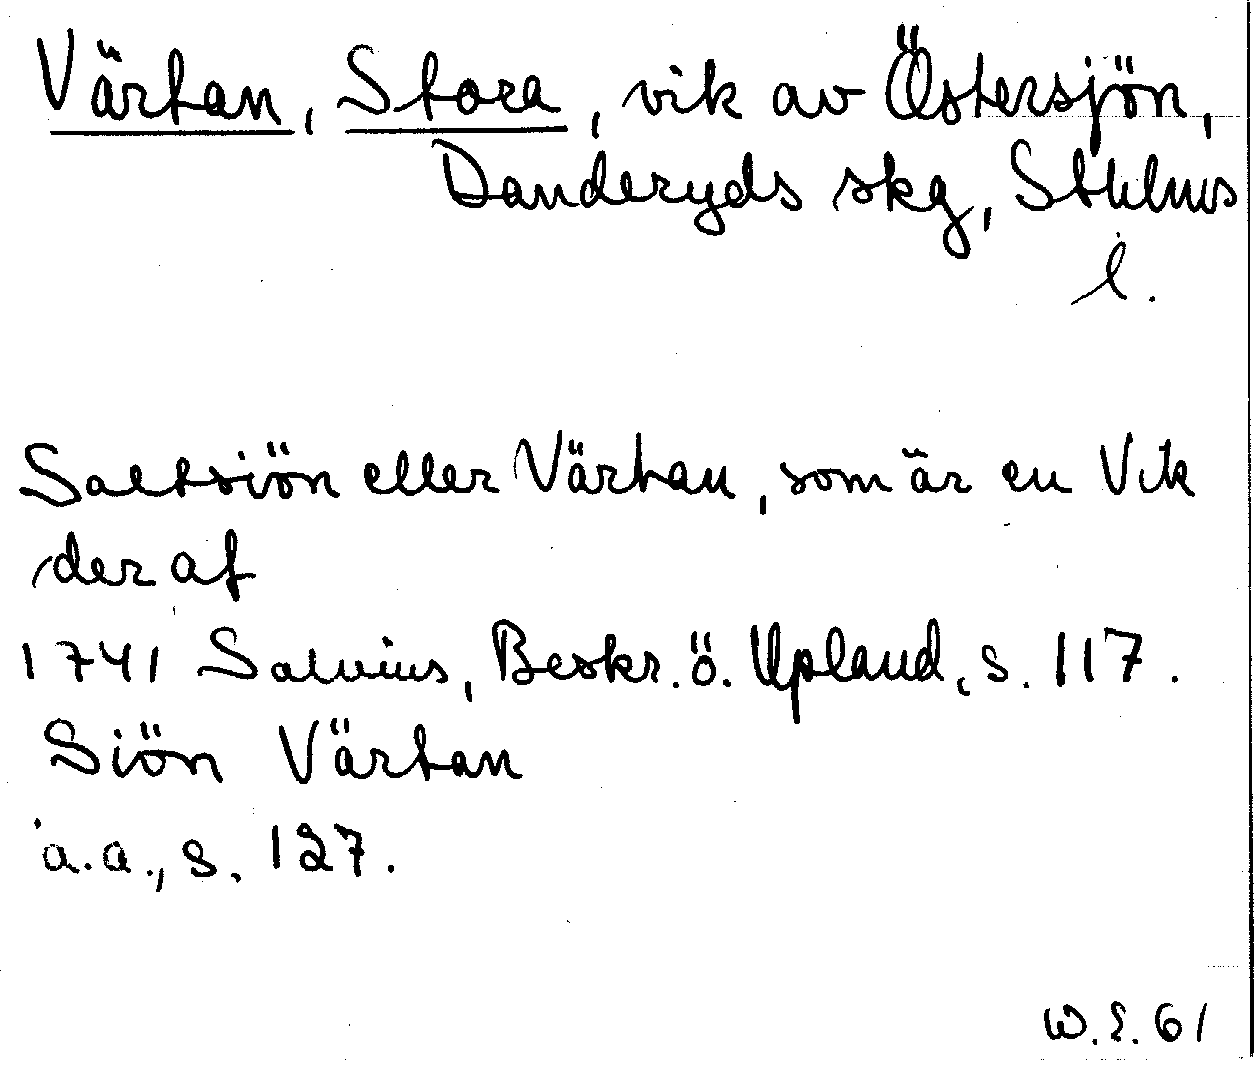 Värtan, Stora, vik av Östersjön,
Danderyds skg, Sthlms
l.
Saltsiön eller Värtan, som är en Vik
der af
1741 Salvius, Beskr. ö. Upland, s. 117.
Siön Värtan
a.a., s. 127.
W.S. 61